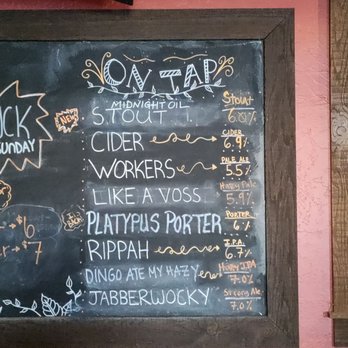 ON TAP
MIDNIGHT OIL Stout
NEW STOUT
CIDER CIDER 6.9%
WORKERS PALE ALE 5.5%
LIKE A VOSS Hazy Pale 5.9%
PLATYPUS PORTER PORTER 6%
RIPPAH IPA 6.7%
DINGO ATE MY HAZY Hazy IPA 7.0%
JABBERWOCKY Strong Ale 7.0%
UCK
SUNDAY
$6
$7